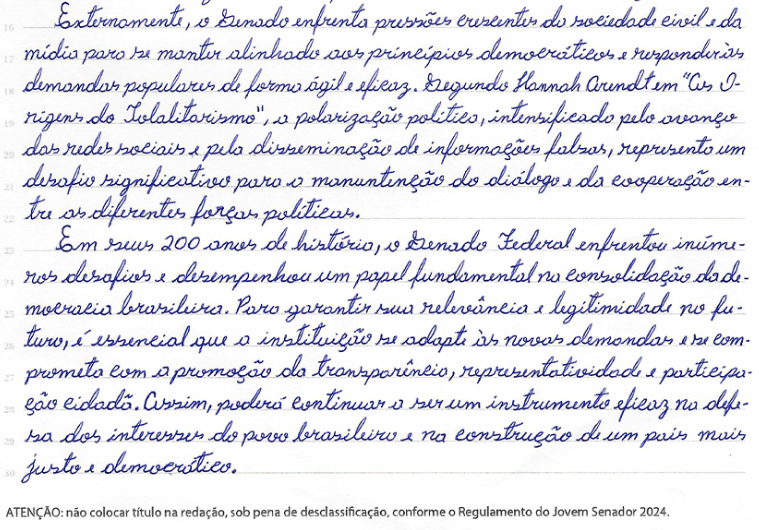 16 Externamente, o Senado enfrenta pressões crescentes da sociedade civil e da
17 mídia para se manter alinhado aos princípios democráticos e responder às
18 demandas populares de forma ágil e eficaz. Segundo Hannah Arendt em "As O-
19 rigens do Totalitarismo", a polarização política, intensificada pelo avanço
20 das redes sociais e pela disseminação de informações falsas, representa um
21 desafio significativo para a manuntenção do diálogo e da cooperação en-
22 tre as diferentes forças políticas.
23 Em seus 200 anos de história, o Senado Federal enfrentou inúme-
24 ros desafios e desempenhou um papel fundamental na consolidação da de-
25 mocracia brasileira. Para garantir sua relevância e legitimidade no fu-
26 turo, é essencial que a instituição se adapte às novas demandas e se com-
27 prometa com a promoção da transparência, representatividade e participa-
28 ção cidadã. Assim, poderá continuar a ser um instrumento eficaz na defe-
29 sa dos interesses do povo brasileiro e na construção de um país mais
30 justo e democrático.
ATENÇÃO: não colocar título na redação, sob pena de desclassificação, conforme o Regulamento do Jovem Senador 2024.